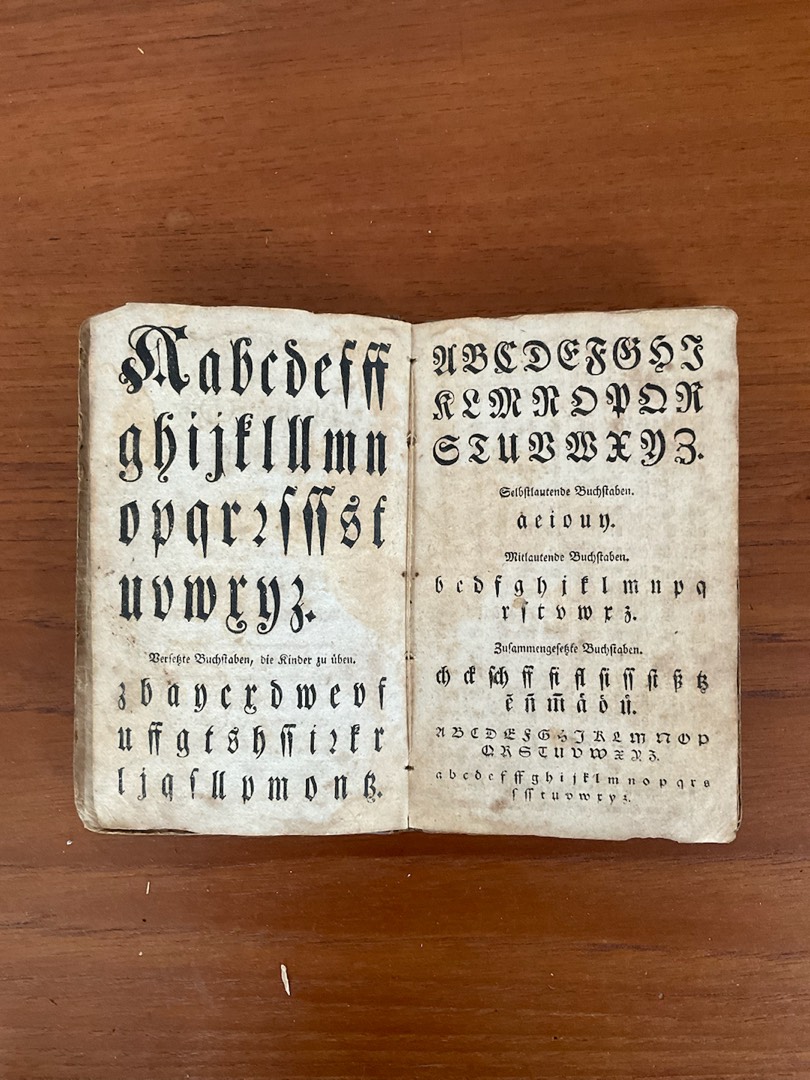 A a b c d e f ff
g h i j k l ll m n
o p q r ꝛ ſ ſſ s t
u v w x y z.
Verſetzte Buchſtaben, die Kinder zu üben.
z b a y c x d w e v f
u ff g t s h ſſ i ꝛ k r
l j q ſ ll p m o n tz.
A B C D E F G H I
K L M N O P Q R
S T U V W X Y Z.
Selbſtlautende Buchſtaben.
a e i o u y.
Mitlautende Buchſtaben.
b c d f g h j k l m n p q
r ſ t v w x z.
Zuſammengeſetzte Buchſtaben.
ch ck ſch ff fi fl ſi ſſ ſt ß tz
ē n̄ m̄ aͤ oͤ uͤ.
A B C D E F G H J K L M N O P
Q R S T U V W X Y Z.
a b c d e f ff g h i j k l m n o p q r s
ſ ſſ t u v w x y z.